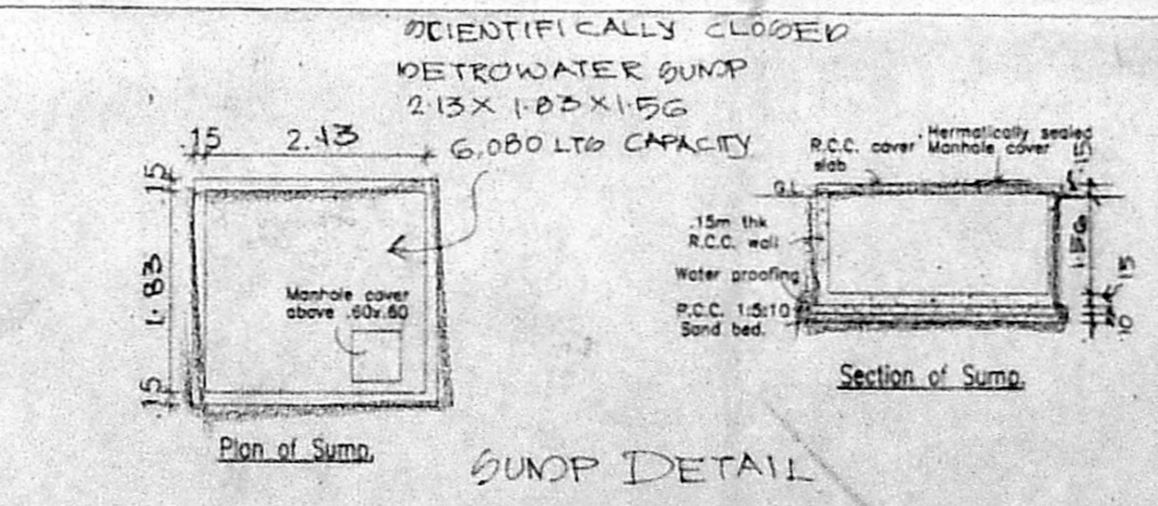 SCIENTIFICALLY CLOSED
METROWATER SUMP
2.13 X 1.83 X 1.56
6,080 LTS CAPACITY
.15
2.13
.15
1.83
.15
Manhole cover
above .60x.60
Plan of Sump.
R.C.C. cover
slab
Hermatically sealed
Manhole cover
.15
G.L.
.15m thk
R.C.C. wall
Water proofing
P.C.C. 1:5:10
Sand bed.
1.56
.15
.10
Section of Sump.
SUMP DETAIL